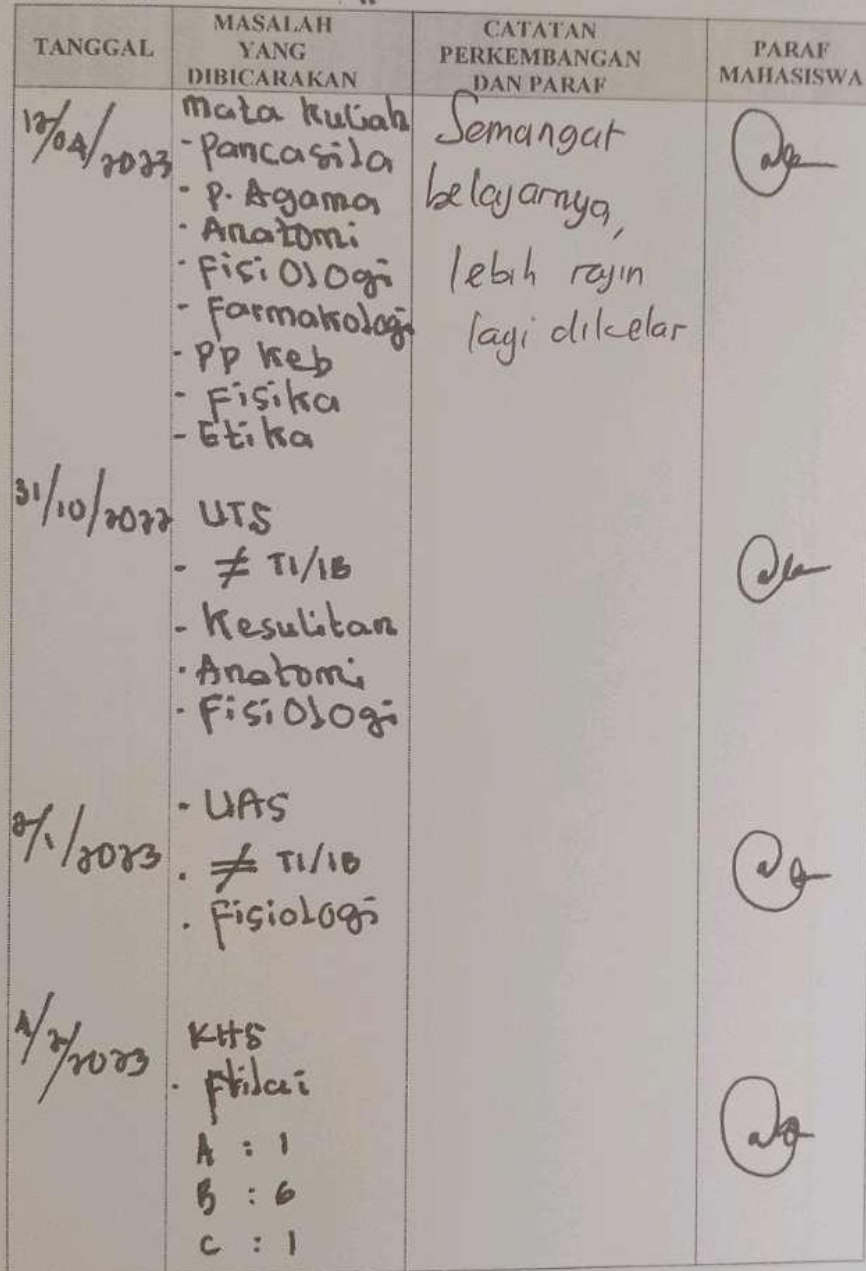 TANGGAL
MASALAH
YANG
DIBICARAKAN
CATATAN
PERKEMBANGAN
DAN PARAF
PARAF
MAHASISWA
12/04/2023
Mata Kuliah
- Pancasila
- P. Agama
- Anatomi
- Fisiologi
- Farmakologi
- PP Keb
- Fisika
- Etika
Semangat
belajarnya,
lebih rajin
lagi dikelar
31/10/2022
UTS
- ≠ TI/IB
- Kesulitan
- Anatomi
- Fisiologi
2/1/2023
- UAS
- ≠ TI/IB
- Fisiologi
4/2/2023
KHS
A : 1
B : 6
C : 1